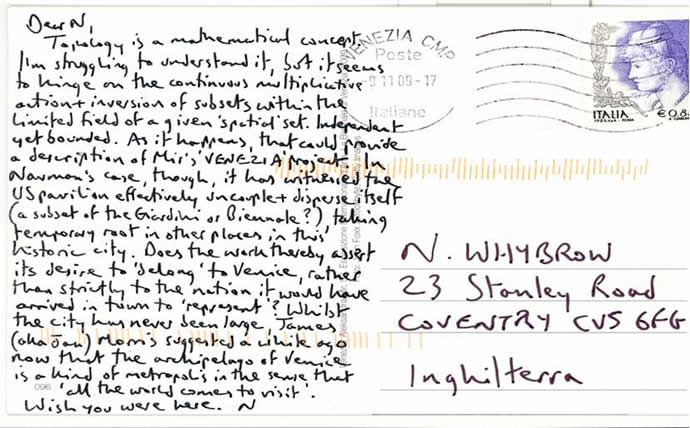 Dear N,
Topology is a mathematical concept
I'm struggling to understand it, but it seems
to hinge on the continuous multiplicative
action + inversion of subsets within the
limited field of a given 'spatial' set. Independent
yet bounded. As it happens, that could provide
a description of Mir's 'VENEZIA' project. In
Nauman's case, though, it has witnessed the
US pavilion effectively uncouple + disperse itself
(a subset of the Giardini or Biennale?) taking
temporary root in other places in this
historic city. Does the work thereby assert
its desire to 'belong' to Venice, rather
than strictly to the nation it would have
arrived in town to 'represent'? Whilst
the city has never been large, James
(aka Jan) Morris suggested a while ago
now that the archipelago of Venice
is a kind of metropolis in the sense that
'all the world comes to visit'.
Wish you were here. N
096
VENEZIA CMP
Poste
11 09 - 17
Italiane
ITALIA
€ 0,8
N. WHYBROW
23 Stanley Road
COVENTRY CV5 6FG
Inghilterra